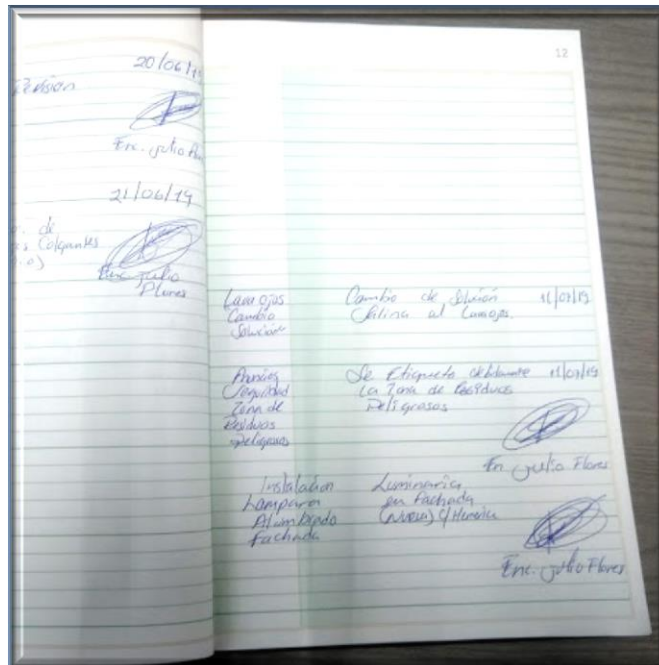 20/06/19
Enc. Julio
21/06/19
de
Colgantes
Enc. Julio
Flores
12
Lava ojos
Cambio
Solución
Cambio de Solución
Salina al Lavaojos.
11/07/19
Seguridad
Zona de
Residuos
Peligrosos
Se Etiqueto debidamente
La Zona de Residuos
Peligrosos
11/07/19
En Julio Flores
Instalacion
Lampara
Alumbrado
Fachada
Luminaria
en Fachada
(Nueva)
Enc. Julio Flores